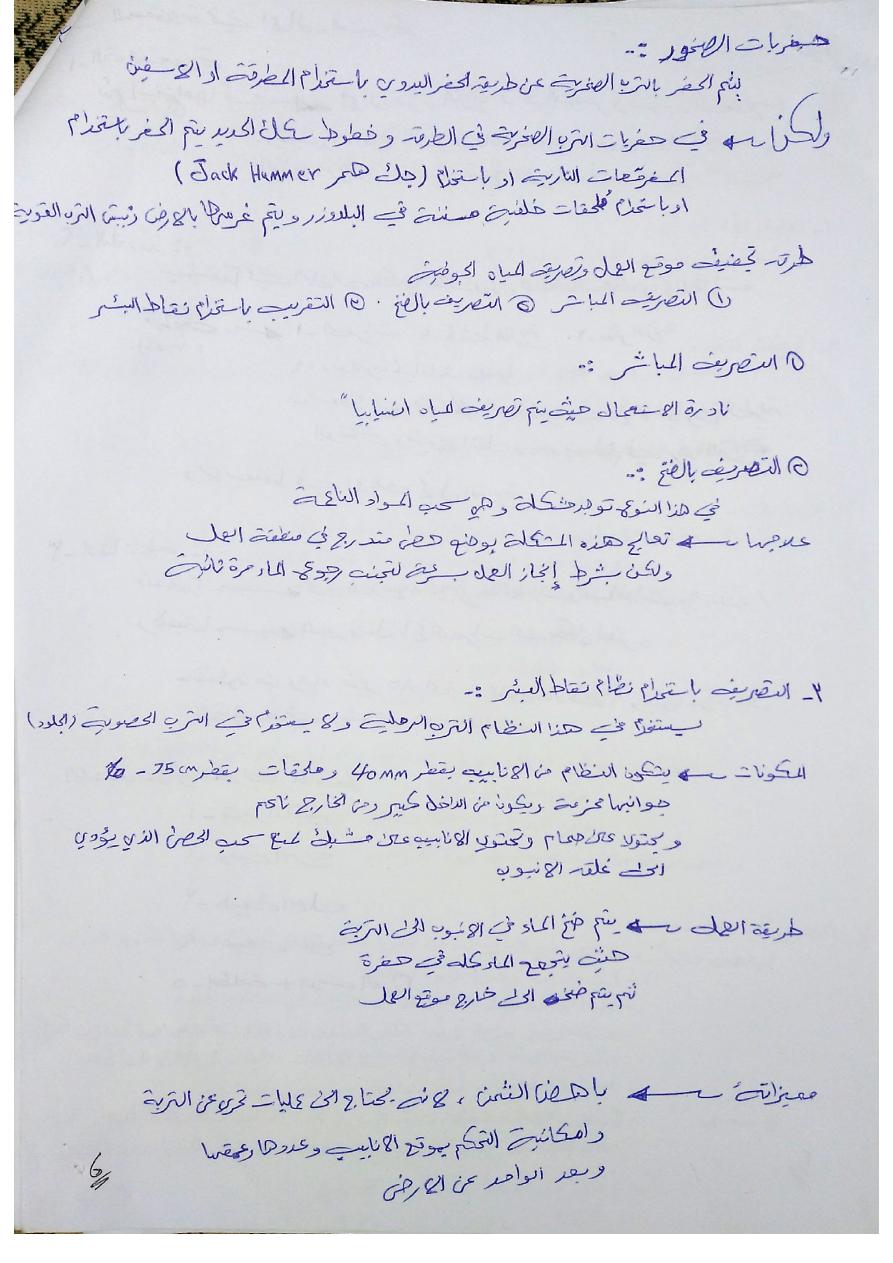 حفريات الصخور :-
يتم الحفر بالترب الصخرية عن طريق الحفر اليدوي باستخدام المطرقة او الاسفين
ولكن ← في حفريات الترب الصخرية في الطرق و خطوط سكك الحديد يتم الحفر باستخدام
المفرقعات النارية او باستخدام (جك همر Jack Hummer)
او باستخدام ملحقات خلفية مسننة في البلدوزر ويتم غرسها بالارض لنبش الترب القوية
طرق تجفيف موقع العمل وتصريف المياه الجوفية
① التصريف المباشر ② التصريف بالضخ . ③ التقريب باستخدام نقاط البئر
① التصريف المباشر :-
نادرة الاستعمال حيث يتم تصريف المياه انسيابياً
② التصريف بالضخ :-
في هذا النوع توجد مشكلة وهي سحب المواد الناعمة
علاجها ← تعالج هذه المشكلة بوضع حصى متدرج في منطقة العمل
ولكن بشرط إنجاز العمل بسرعة لتجنب رجوع الماء مرة ثانية
٣- التصريف باستخدام نظام نقاط البئر :-
يستخدم في هذا النظام الترب الرملية ولا يستخدم في الترب الحصوية (الجلود)
المكونات ← يتكون النظام من الانابيب بقطر 40mm وملحقات بقطر 75cm -
جوانبها مخرمة ويكون من الداخل كبير ومن الخارج ناعم
ويحتوي على صمام وتحتوي الانابيب على مشبك لمنع سحب الحصى الذي يؤدي
الى غلق الانبوب
طريقة العمل ← يتم ضخ الماء في الانبوب الى التربة
حيث يتجمع الماء كله في حفرة
ثم يتم ضخه الى خارج موقع العمل
مميزاته ← باهض الثمن ، لانه يحتاج الى عمليات تحري عن التربة
وامكانية التحكم بموقع الانابيب وعددها وعمقها
وبعد الواحد عن الارض